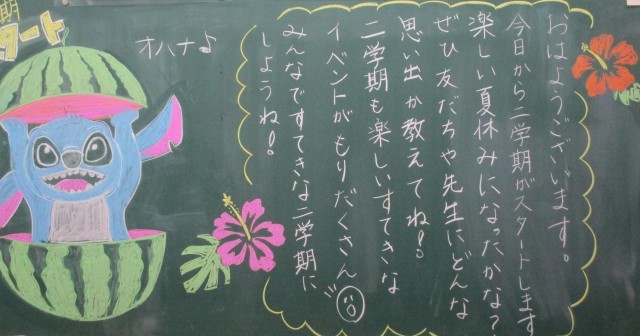 おはようございます。
今日から二学期がスタートします
楽しい夏休みになったかな?
ぜひ友だちや先生にどんな
思い出か教えてね!
二学期も楽しいすてきな
イベントがもりだくさん
みんなですてきな二学期に
しようね!
オハナ♪
期
タート